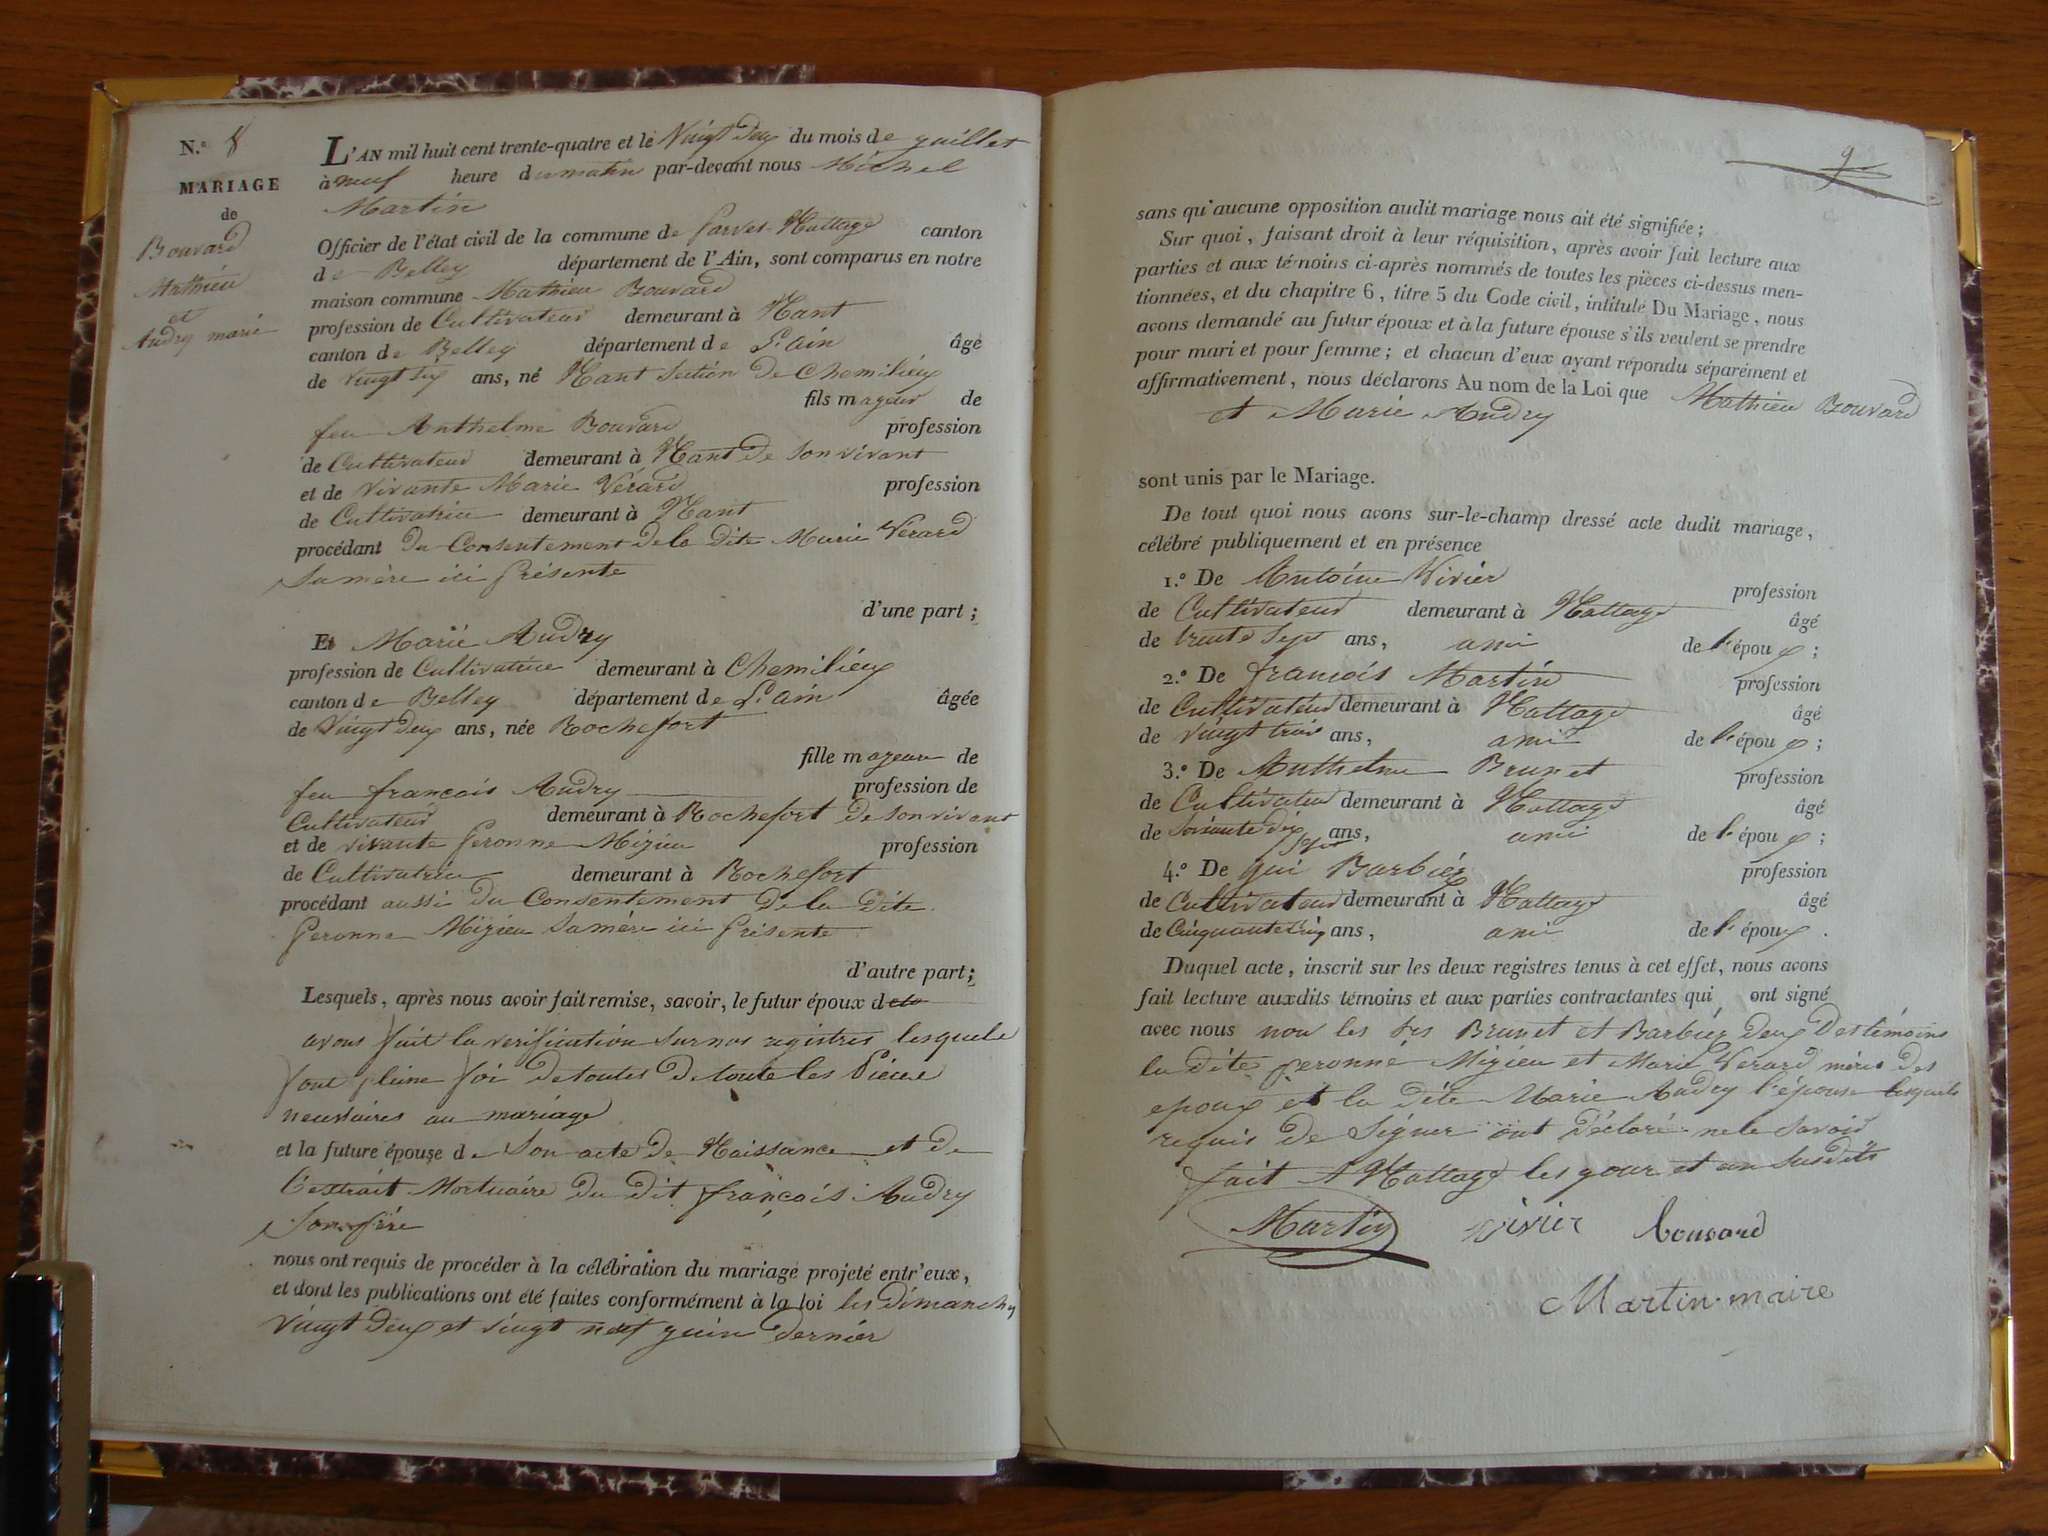 N.º 8
MARIAGE
de
Bouvard
Mathieu
et
Audry marie
L'AN mil huit cent trente-quatre et le Vingt Deux du mois de juillet
à neuf heure du matin par-devant nous Michel
Martin
Officier de l'état civil de la commune de Parves-Nattage canton
de Belley département de l'Ain, sont comparus en notre
maison commune Mathieu Bouvard
profession de Cultivateur demeurant à Nant
canton de Belley département de L'ain âgé
de vingt six ans, né Nant Section De Chemilieu
fils majeur de
feu Anthelme Bouvard profession
de Cultivateur demeurant à Nant De Son vivant
et de vivante Marie Vérard profession
de Cultivatrice demeurant à Nant
procédant Du Consentement De la Dite Marie Verard
Sa mère ici présente
d'une part ;
Et Marie Audry
profession de Cultivatrice demeurant à Chemilieu
canton de Belley département de L'ain âgée
de Vingt Deux ans, née Rochefort
fille majeure de
feu françois Audry profession de
Cultivateur demeurant à Rochefort De son vivant
et de vivante Peronne Migieu profession
de Cultivatrice demeurant à Rochefort
procédant aussi Du Consentement De la Dite
Peronne Migieu Sa mère ici présente
d'autre part ;
Lesquels, après nous avoir fait remise, savoir, le futur époux d
avons fait la verification sur nos registres lesquels
font pleine foi De toutes De toute les Pièces
necessaires au mariage
et la future épouse de Son acte De Naissance et De
l'extrait Mortuaire Du Dit françois Audry
Son père
nous ont requis de procéder à la célébration du mariage projeté entr'eux,
et dont les publications ont été faites conformément à la loi les Dimanches
vingt Deux et vingt neuf juin Dernier
9
sans qu'aucune opposition audit mariage nous ait été signifiée ;
Sur quoi, faisant droit à leur réquisition, après avoir fait lecture aux
parties et aux témoins ci-après nommés de toutes les pièces ci-dessus men-
tionnées, et du chapitre 6, titre 5 du Code civil, intitulé Du Mariage, nous
avons demandé au futur époux et à la future épouse s'ils veulent se prendre
pour mari et pour femme ; et chacun d'eux ayant répondu séparément et
affirmativement, nous déclarons Au nom de la Loi que Mathieu Bouvard
et Marie Audry
sont unis par le Mariage.
De tout quoi nous avons sur-le-champ dressé acte dudit mariage,
célébré publiquement et en présence
1.º De Antoine Vivier profession
de Cultivateur demeurant à Nattage âgé
de trente Sept ans, ami de l'époux ;
2.º De francois Martin profession
de Cultivateur demeurant à Nattage âgé
de vingt trois ans, ami de l'époux ;
3.º De Anthelme Brunet profession
de Cultivateur demeurant à Nattage âgé
de Soixante Dix ans, ami de l'époux ;
Sept
4.º De gui Barbiez profession
de Cultivateur demeurant à Nattage âgé
de Cinquante Cinq ans, ami de l'époux .
Duquel acte, inscrit sur les deux registres tenus à cet effet, nous avons
fait lecture auxdits témoins et aux parties contractantes qui ont signé
avec nous non les Brunet et Barbiez Deux Des témoins
la Dite peronne Migieu et Marie Verard mères des
epoux et la Dite Marie Audry l'épouse lesquels
requis De Signer ont Déclaré ne le Savoir
fait A Nattage les jour et an Susdits
Martin vivier bouvard
Martin maire